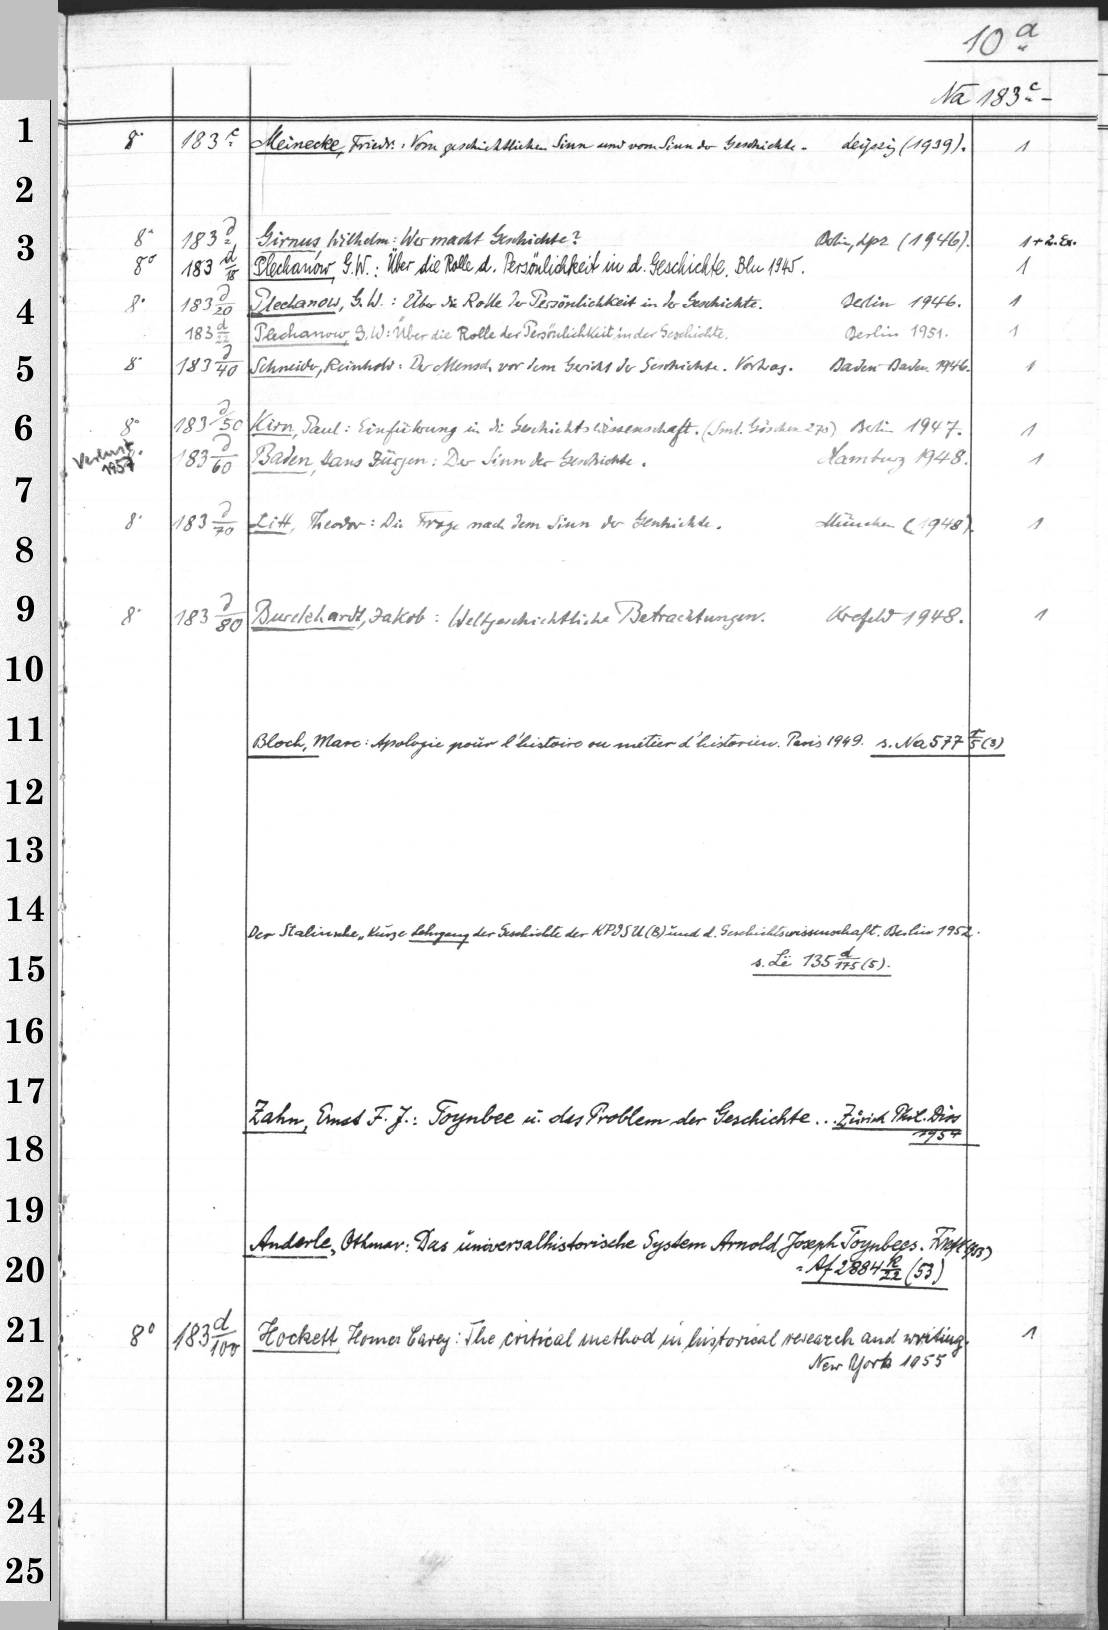 10 a
Na 183 c -
1
8° 183 c Meinecke, Friedr.: Vom geschichtlichen Sinn und vom Sinn der Geschichte. Leipzig (1939). 1
2
8° 183 d Girnus, Wilhelm: Wer macht Geschichte? Berlin, Lpz (1946). 1 + 2. Ex.
3
8° 183 d/18 Plechanow, G.W.: Über die Rolle d. Persönlichkeit in d. Geschichte. Bln 1945. 1
4 8° 183 d/20 Plechanow, G.W.: Über die Rolle der Persönlichkeit in der Geschichte. Berlin 1946. 1
183 d/22 Plechanow, G.W: Über die Rolle der Persönlichkeit in der Geschichte. Berlin 1951. 1
5 8° 183 d/40 Schneider, Reinhold: Der Mensch vor dem Gericht der Geschichte. Vortrag. Baden-Baden 1946. 1
6 8° 183 d/50 Kirn, Paul: Einführung in die Geschichtswissenschaft. (Sml. Göschen 270) Berlin 1947. 1
Verlust 8° 183 d/60 Baden, Hans Jürgen: Der Sinn der Geschichte. Hamburg 1948. 1
1957
7
8° 183 d/70 Litt, Theodor: Die Frage nach dem Sinn der Geschichte. München (1948). 1
8
9 8° 183 d/80 Burckhardt, Jakob: Weltgeschichtliche Betrachtungen. Krefeld 1948. 1
10
11
Bloch, Marc: Apologie pour l'histoire ou métier d'historien. Paris 1949. s. Na 577 /5 (3)
12
13
14
Der Stalinsche "Kurze Lehrgang der Geschichte der KPdSU (B)" und d. Geschichtswissenschaft. Berlin 1952.
15 s. Lë 135 d/175 (5).
16
17
Zahn, Ernst F. J.: Toynbee u. das Problem der Geschichte... Zürich Phil. Diss
1954
18
19
Anderle, Othmar: Das universalhistorische System Arnold Joseph Toynbees. Frkft
20 = Af 2884 /22 (53)
21 8° 183 d/100 Hockett, Homer Carey: The critical method in historical research and writing. 1
New York 1955
22
23
24
25